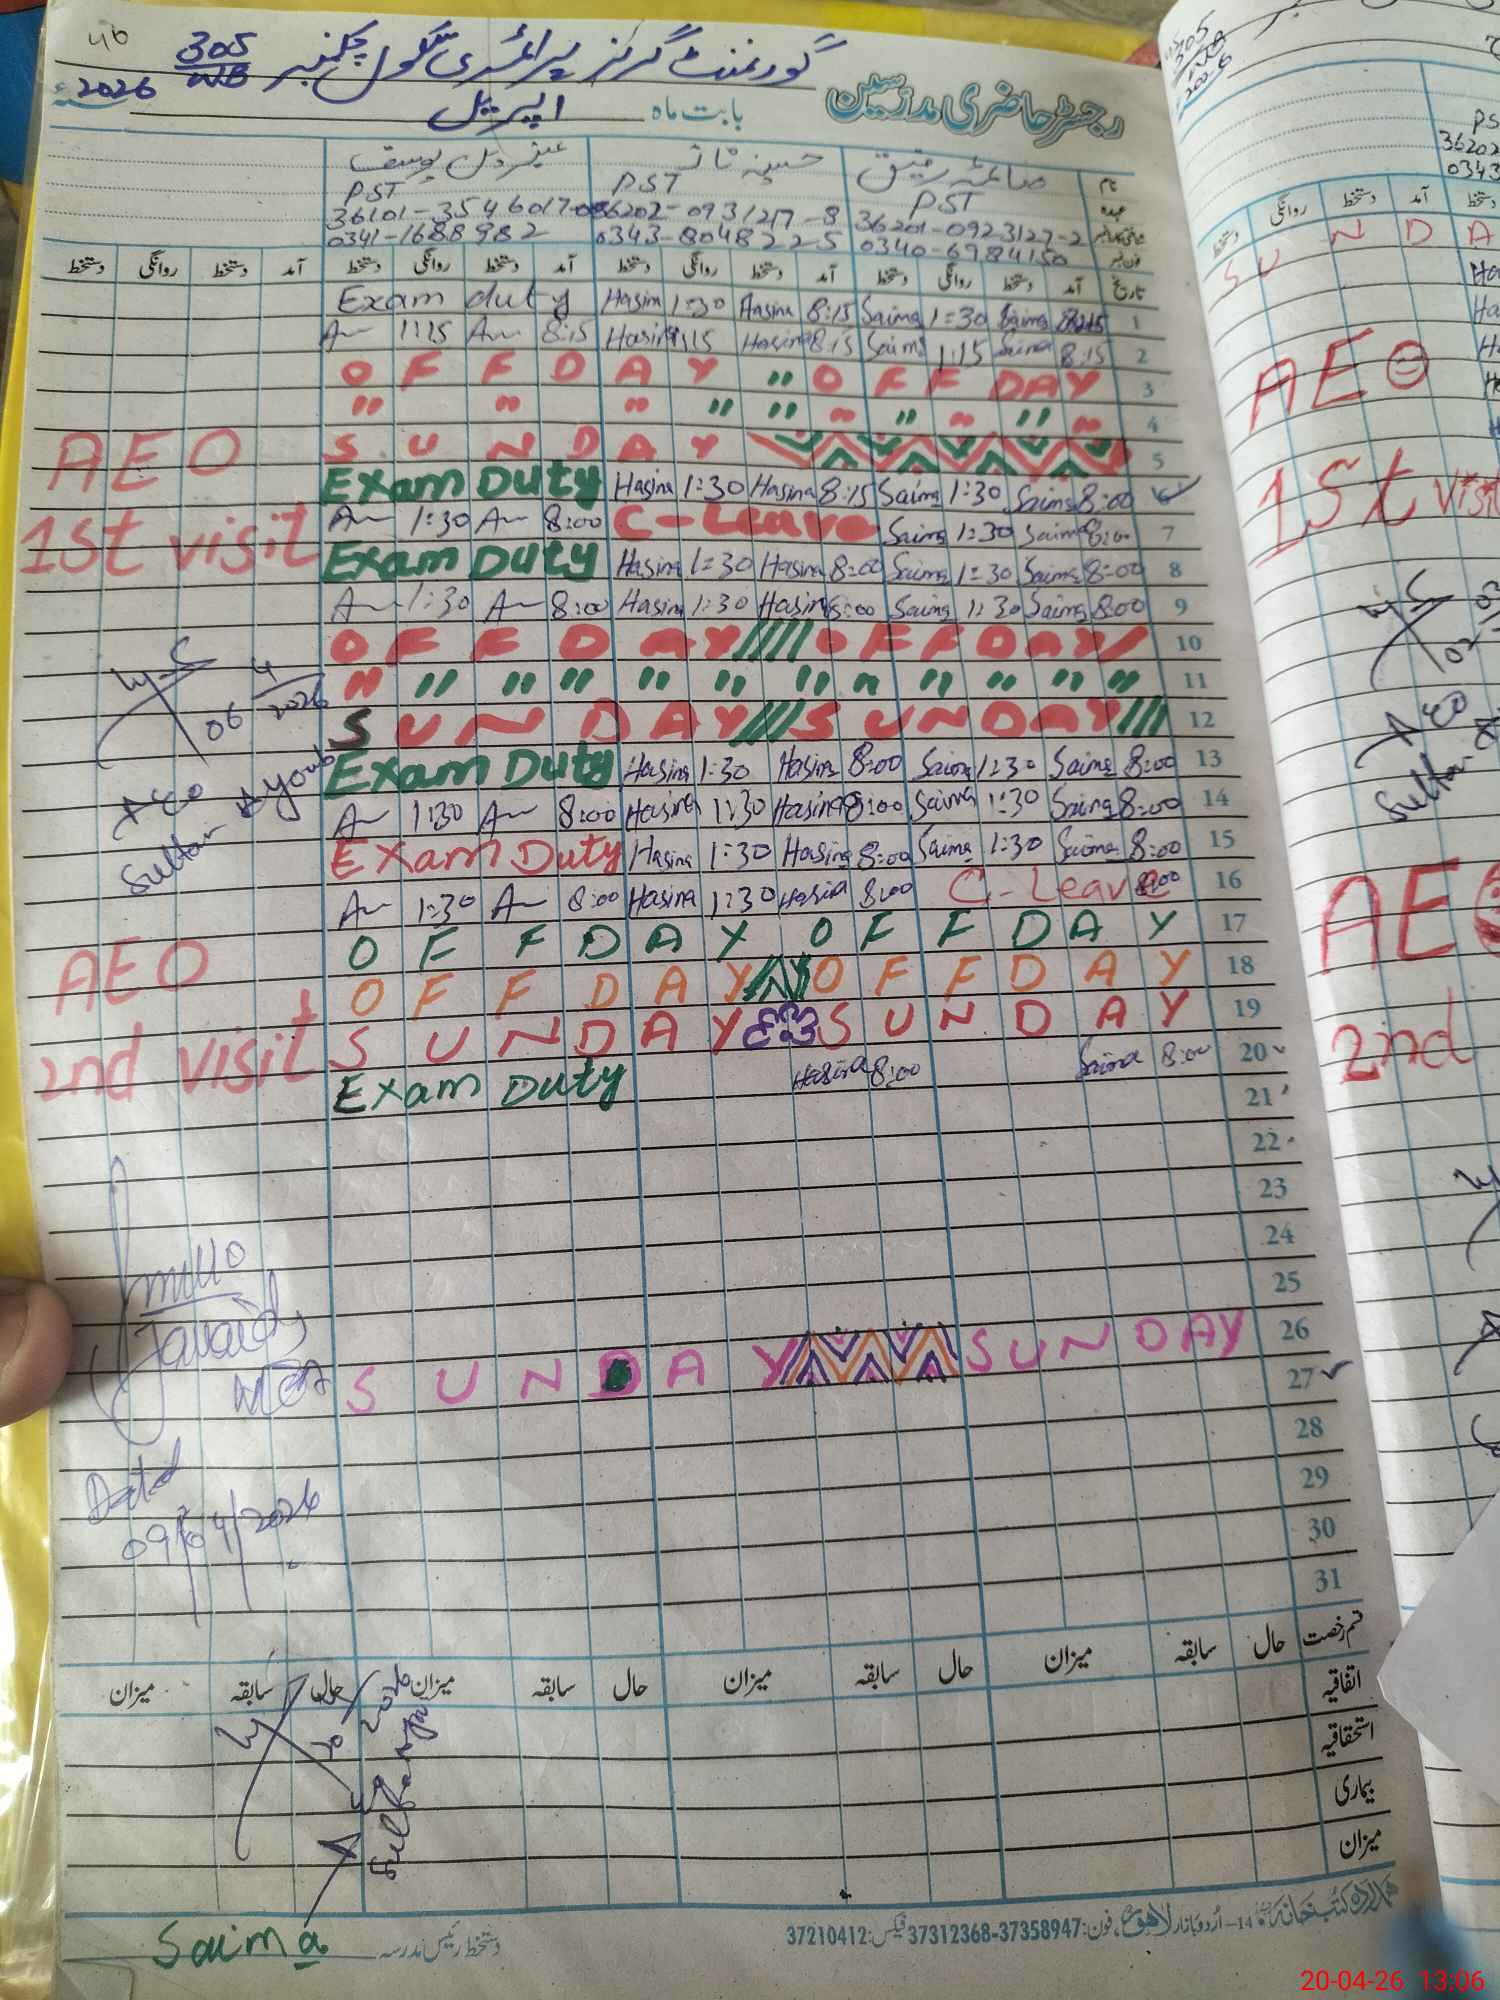 46
305/WB گورنمنٹ گرلز پرائمری سکول چکنمبر
رجسٹر حاضری مدرسین بابت ماہ اپریل 2026ء
نام صائمہ رفیق حسینہ ناز عنبر دل یوسف
عہدہ PST PST PST
36201-0923127-2 36202-0931217-8 36101-3546017-0
0340-6984150 0343-8048225 0341-1688982
دستخط روانگی دستخط آمد دستخط روانگی دستخط آمد دستخط روانگی دستخط آمد دستخط روانگی دستخط آمد تاریخ
Exam duty Hasina 1:30 Hasina 8:15 Saima 1:30 Saima 8:15 1
1:15 8:15 Hasina 1:15 Hasina 8:15 Saima 1:15 Saima 8:15 2
O F F D A Y " O F F D A Y 3
" " " " " " " " " " 4
S U N D A Y 5
AEO
Exam Duty Hasina 1:30 Hasina 8:15 Saima 1:30 Saima 8:00 6
1:30 8:00 C-Leave Saima 1:30 Saima 8:00 7
1st visit
Exam Duty Hasina 1:30 Hasina 8:00 Saima 1:30 Saima 8:00 8
1:30 8:00 Hasina 1:30 Hasina 8:00 Saima 1:30 Saima 8:00 9
O F F D A Y O F F D A Y 10
" " " " " " " " " " " " 11
06 4 2026
S U N D A Y S U N D A Y 12
Exam Duty Hasina 1:30 Hasina 8:00 Saima 1:30 Saima 8:00 13
AEO
Sultan Ayoub
1:30 8:00 Hasina 1:30 Hasina 8:00 Saima 1:30 Saima 8:00 14
Exam Duty Hasina 1:30 Hasina 8:00 Saima 1:30 Saima 8:00 15
1:30 8:00 Hasina 1:30 Hasina 8:00 C-Leave 8:00 16
O F F D A Y O F F D A Y 17
AEO
O F F D A Y O F F D A Y 18
S U N D A Y S U N D A Y 19
2nd visit
Exam Duty Hasina 8:00 Saima 8:00 20
21
22
23
24
25
S U N D A Y S U N D A Y 26
27
Javaid
MEA
28
Dated
09/04/2026
29
30
31
میزان سابقہ حال میزان سابقہ حال میزان سابقہ حال میزان سابقہ حال قسم رخصت
اتفاقیہ
استحقاقیہ
بیماری
میزان
2026
Sultan
Saima دستخط رئیس مدرسہ
ہمدرد کتب خانہ 14-اُردو بازار لاہور، فون: 37312368-37358947 فیکس: 37210412
305
PS
36202
0343
دستخط روانگی دستخط آمد دستخط
S U N D A
AEO
1st visit
AEO
Sultan
AEO
2nd
20-04-26 13:06